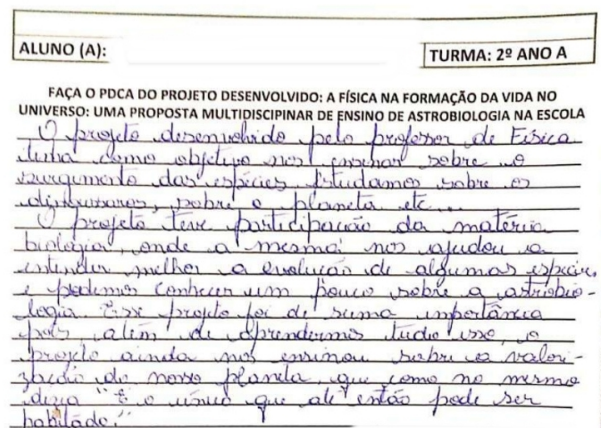 ALUNO (A):
TURMA: 2º ANO A
FAÇA O PDCA DO PROJETO DESENVOLVIDO: A FÍSICA NA FORMAÇÃO DA VIDA NO
UNIVERSO: UMA PROPOSTA MULTIDISCIPINAR DE ENSINO DE ASTROBIOLOGIA NA ESCOLA
O projeto desenvolvido pelo professor de Física
tinha como objetivo nos ensinar sobre o
surgimento das espécies. Estudamos sobre os
dinossauros, sobre o planeta etc...
O projeto teve participação da matéria
biologia, onde a mesma nos ajudou a
entender melhor a evolução de algumas espécies,
e podemos conhecer um pouco sobre a astrobio-
logia. Esse projeto foi de suma importância
pois além de aprendermos tudo isso, o
projeto ainda nos ensinou sobre a valori-
zação do nosso planeta, que como no mesmo
dizia "É o único que até então pode ser
habitado."